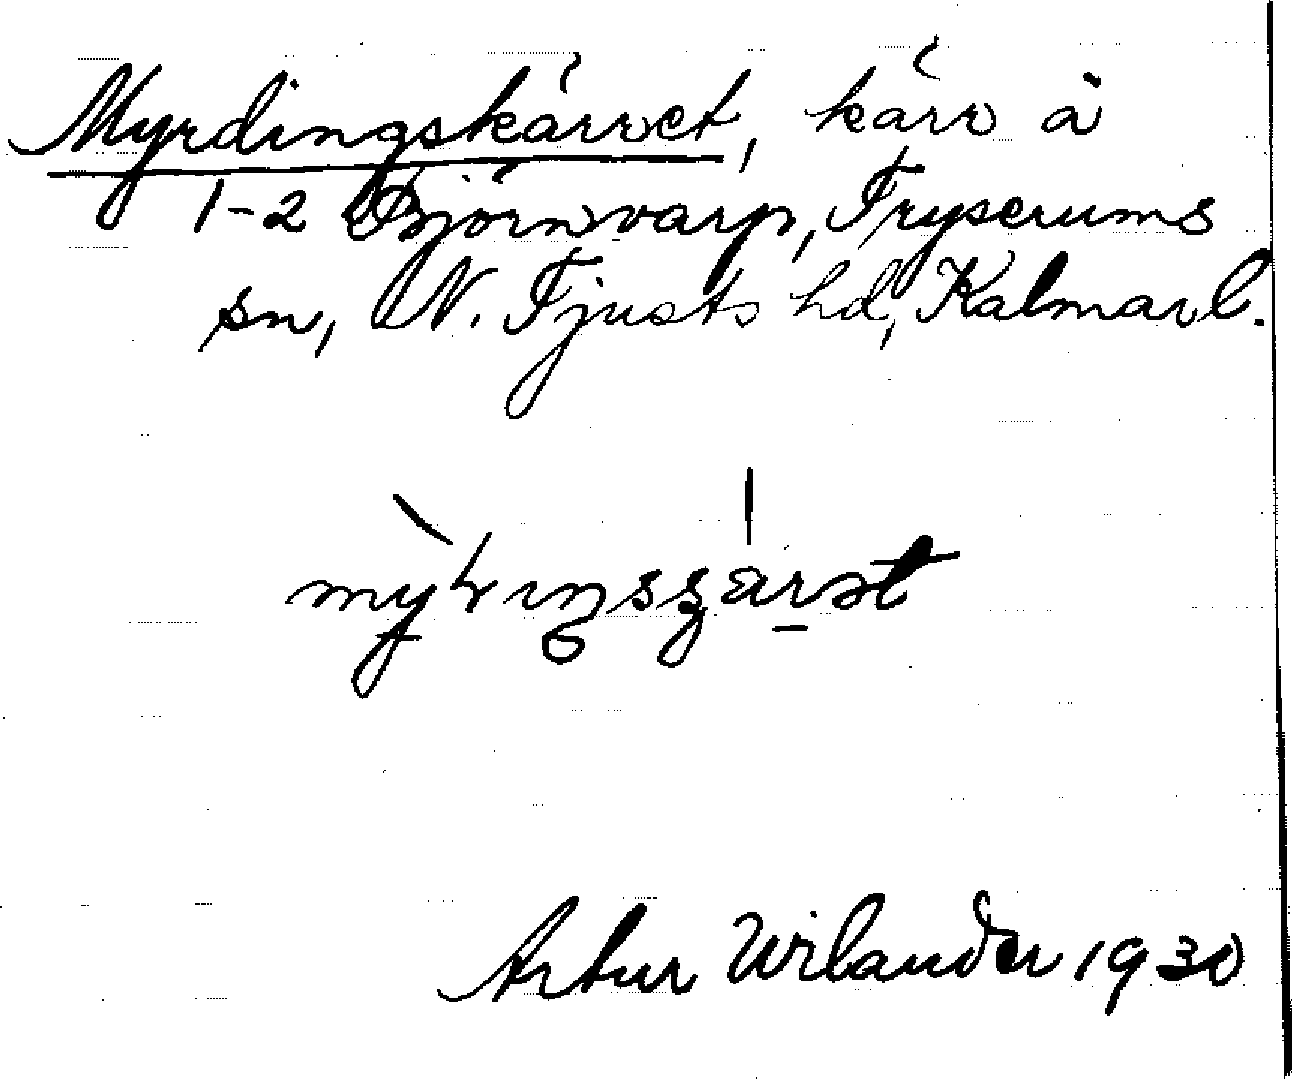 Myrdingskärret, kärr å
1-2 Björnvarp, Tryserums
sn, N. Tjusts hd, Kalmar l.
Artur Wilander 1930